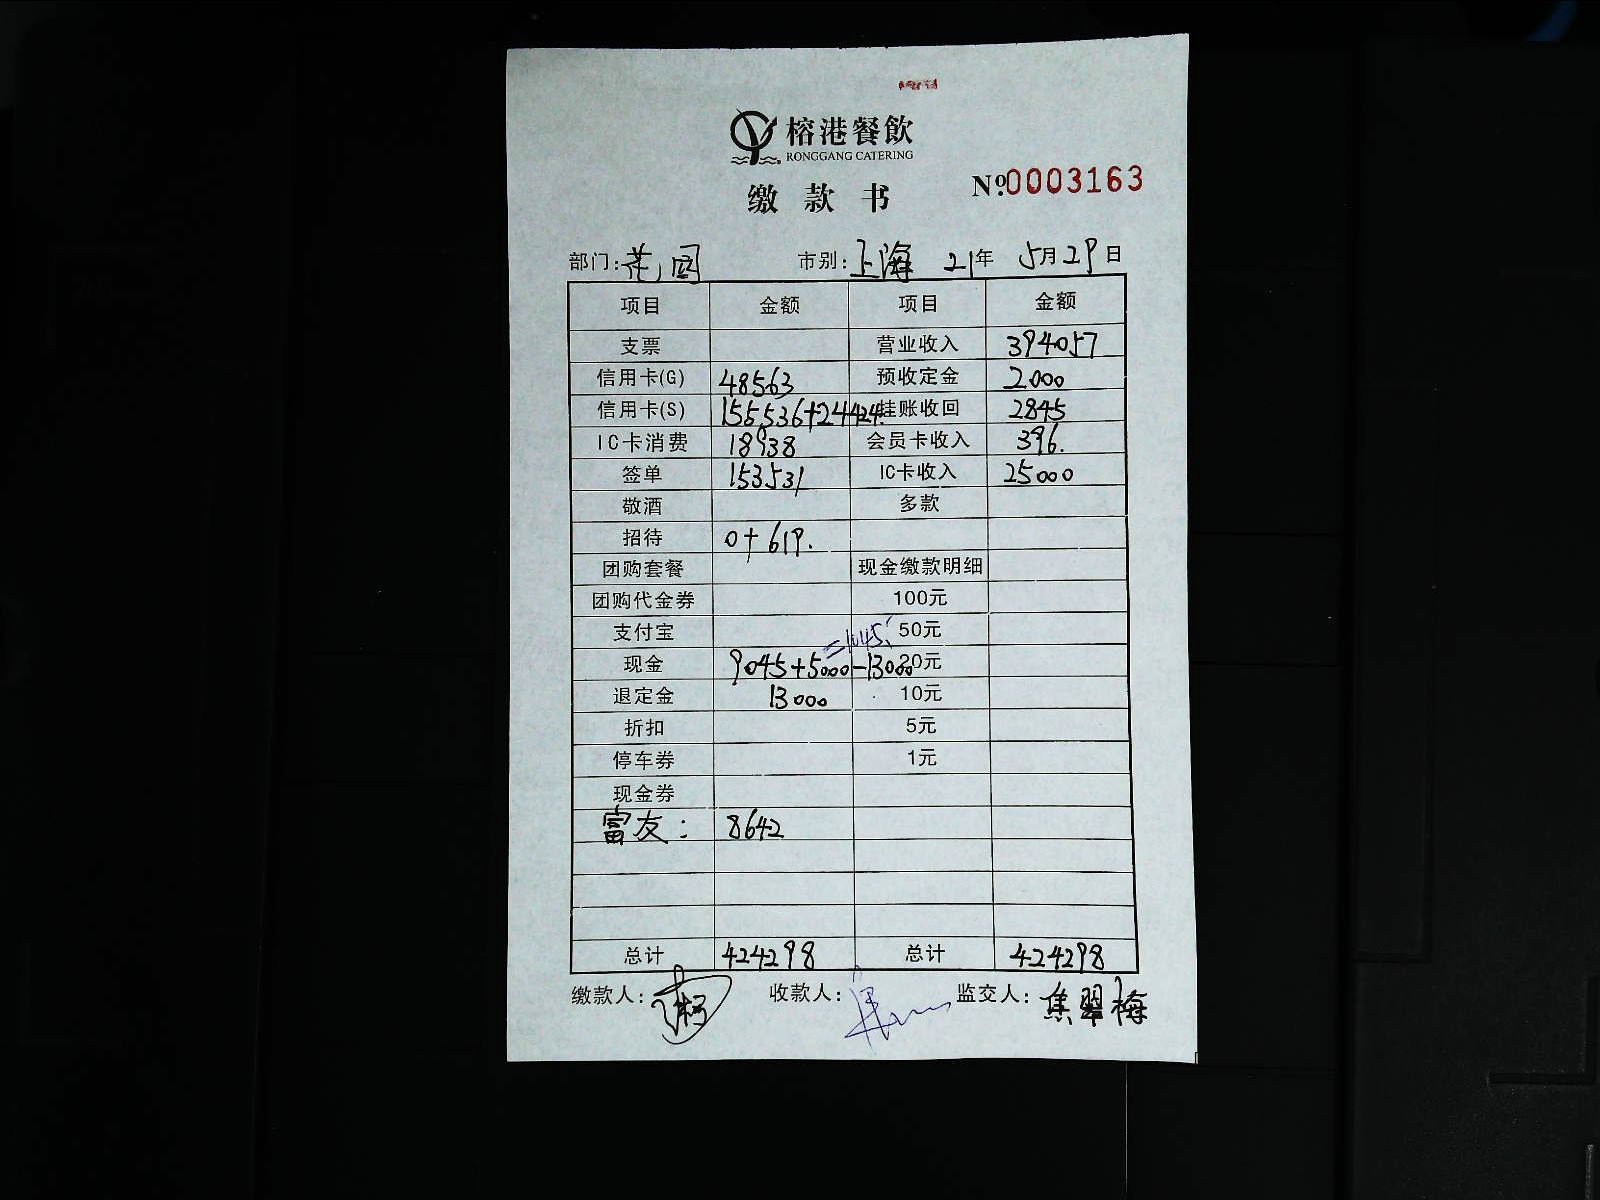 榕港餐飲
RONGGANG CATERING
缴款书 Nº0003163
部门:花园 市别:上海 21年 5月29日
项目 金额 项目 金额
支票 营业收入 394057
信用卡(G) 48563 预收定金 2000
信用卡(S) 155536+24424. 挂账收回 2845
IC卡消费 18938 会员卡收入 396.
签单 153531 IC卡收入 25000
敬酒 多款
招待 0+619.
团购套餐 现金缴款明细
团购代金券 100元
支付宝 =1045. 50元
现金 9045+5000-13000 20元
退定金 13000 10元
折扣 5元
停车券 1元
现金券
富友: 8642
总计 424298 总计 424298
缴款人: 收款人: 监交人:焦翠梅